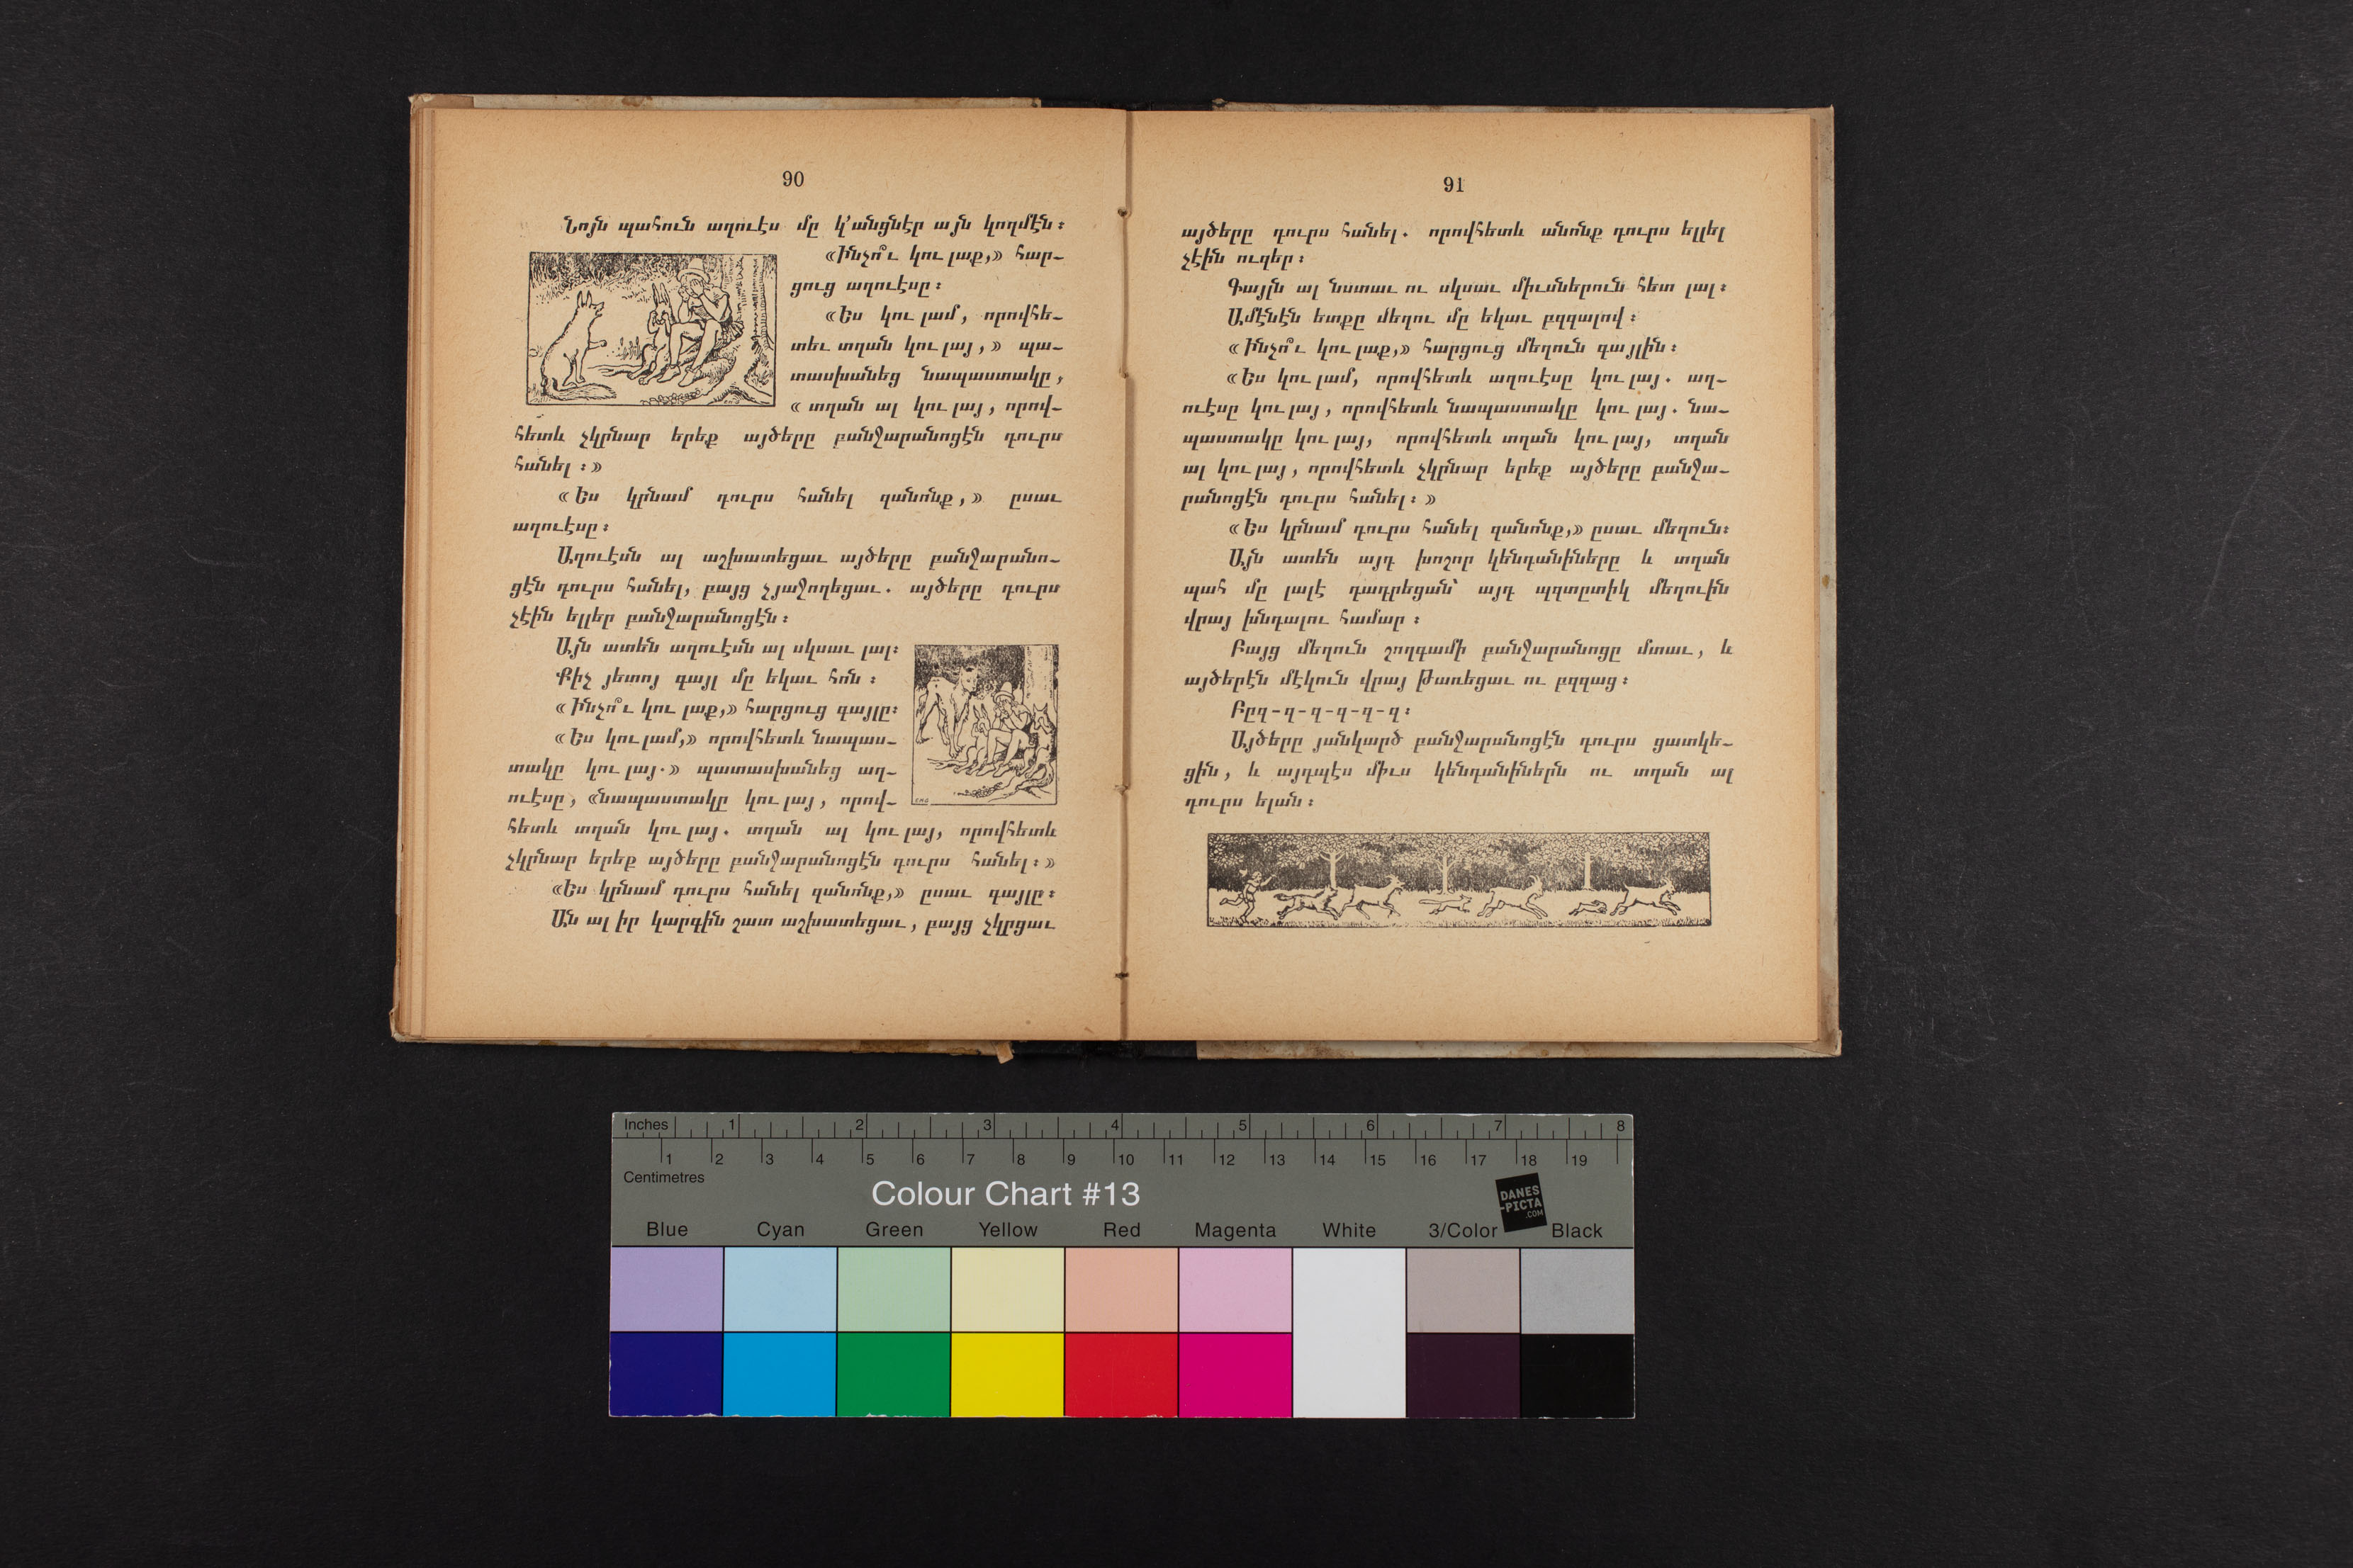 90
Նոյն պահուն աղուէս մը կ՚անցնէր այն կողմէն։
«Ինչո՞ւ կու լաք,» հար-
ցուց աղուէսը։
«Ես կու լամ, որովհե-
տեւ տղան կու լայ,» պա-
տասխանեց նապաստակը,
«տղան ալ կու լայ, որով-
հետև չկրնար երեք այծերը բանջարանոցէն դուրս
հանել։»
«Ես կրնամ դուրս հանել զանոնք,» ըսաւ
աղուէսը։
Աղուէսն ալ աշխատեցաւ այծերը բանջարանո-
ցէն դուրս հանել, բայց չյաջողեցաւ. այծերը դուրս
չէին ելլեր բանջարանոցէն։
Այն ատեն աղուէսն ալ սկսաւ լալ։
Քիչ յետոյ գայլ մը եկաւ հոն։
«Ինչո՞ւ կու լաք,» հարցուց գայլը։
«Ես կու լամ,» որովհետև նապաս-
տակը կու լայ.» պատասխանեց աղ-
ուէսը, «նապաստակը կու լայ, որով-
հետև տղան կու լայ. տղան ալ կու լայ, որովհետև
չկրնար երեք այծերը բանջարանոցէն դուրս հանել։»
«Ես կրնամ դուրս հանել զանոնք,» ըսաւ գայլը։
Ան ալ իր կարգին շատ աշխատեցաւ, բայց չկրցաւ
91
այծերը դուրս հանել. որովհետև անոնք դուրս ելլել
չէին ուզեր։
Գայլն ալ նստաւ ու սկսաւ միւսներուն հետ լալ։
Ամէնէն ետքը մեղու մը եկաւ բզզալով։
«Ինչո՞ւ կու լաք,» հարցուց մեղուն գայլին։
«Ես կու լամ, որովհետև աղուէսը կու լայ. աղ-
ուէսը կու լայ, որովհետև նապաստակը կու լայ. նա-
պաստակը կու լայ, որովհետև տղան կու լայ, տղան
ալ կու լայ, որովհետև չկրնար երեք այծերը բանջա-
րանոցէն դուրս հանել։»
«Ես կրնամ դուրս հանել զանոնք,» ըսաւ մեղուն։
Այն ատեն այդ խոշոր կենդանիները և տղան
պահ մը լալէ դադրեցան՝ այդ պզտըտիկ մեղուին
վրայ խնդալու համար։
Բայց մեղուն շողգամի բանջարանոցը մտաւ, և
այծերէն մէկուն վրայ թառեցաւ ու բզզաց։
Բըզ-զ-զ-զ-զ-զ։
Այծերը յանկարծ բանջարանոցէն դուրս ցատկե-
ցին, և այդպէս միւս կենդանիներն ու տղան ալ
դուրս ելան։
Inches 1 2 3 4 5 6 7 8
1 2 3 4 5 6 7 8 9 10 11 12 13 14 15 16 17 18 19
Centimetres
Colour Chart #13
DANES
-PICTA
.COM
Blue Cyan Green Yellow Red Magenta White 3/Color Black